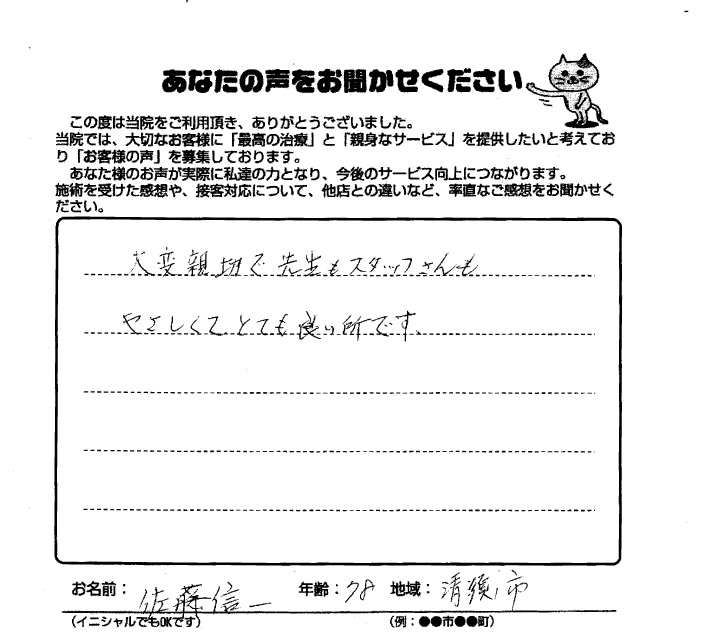 あなたの声をお聞かせください
この度は当院をご利用頂き、ありがとうございました。
当院では、大切なお客様に「最高の治療」と「親身なサービス」を提供したいと考えてお
り「お客様の声」を募集しております。
あなた様のお声が実際に私達の力となり、今後のサービス向上につながります。
施術を受けた感想や、接客対応について、他店との違いなど、率直なご感想をお聞かせく
ださい。
大変親切で先生もスタッフさんも
やさしくてとても良い所です。
お名前：佐藤信一 年齢：78 地域：清須市
（イニシャルでもOKです） （例：●●市●●町）